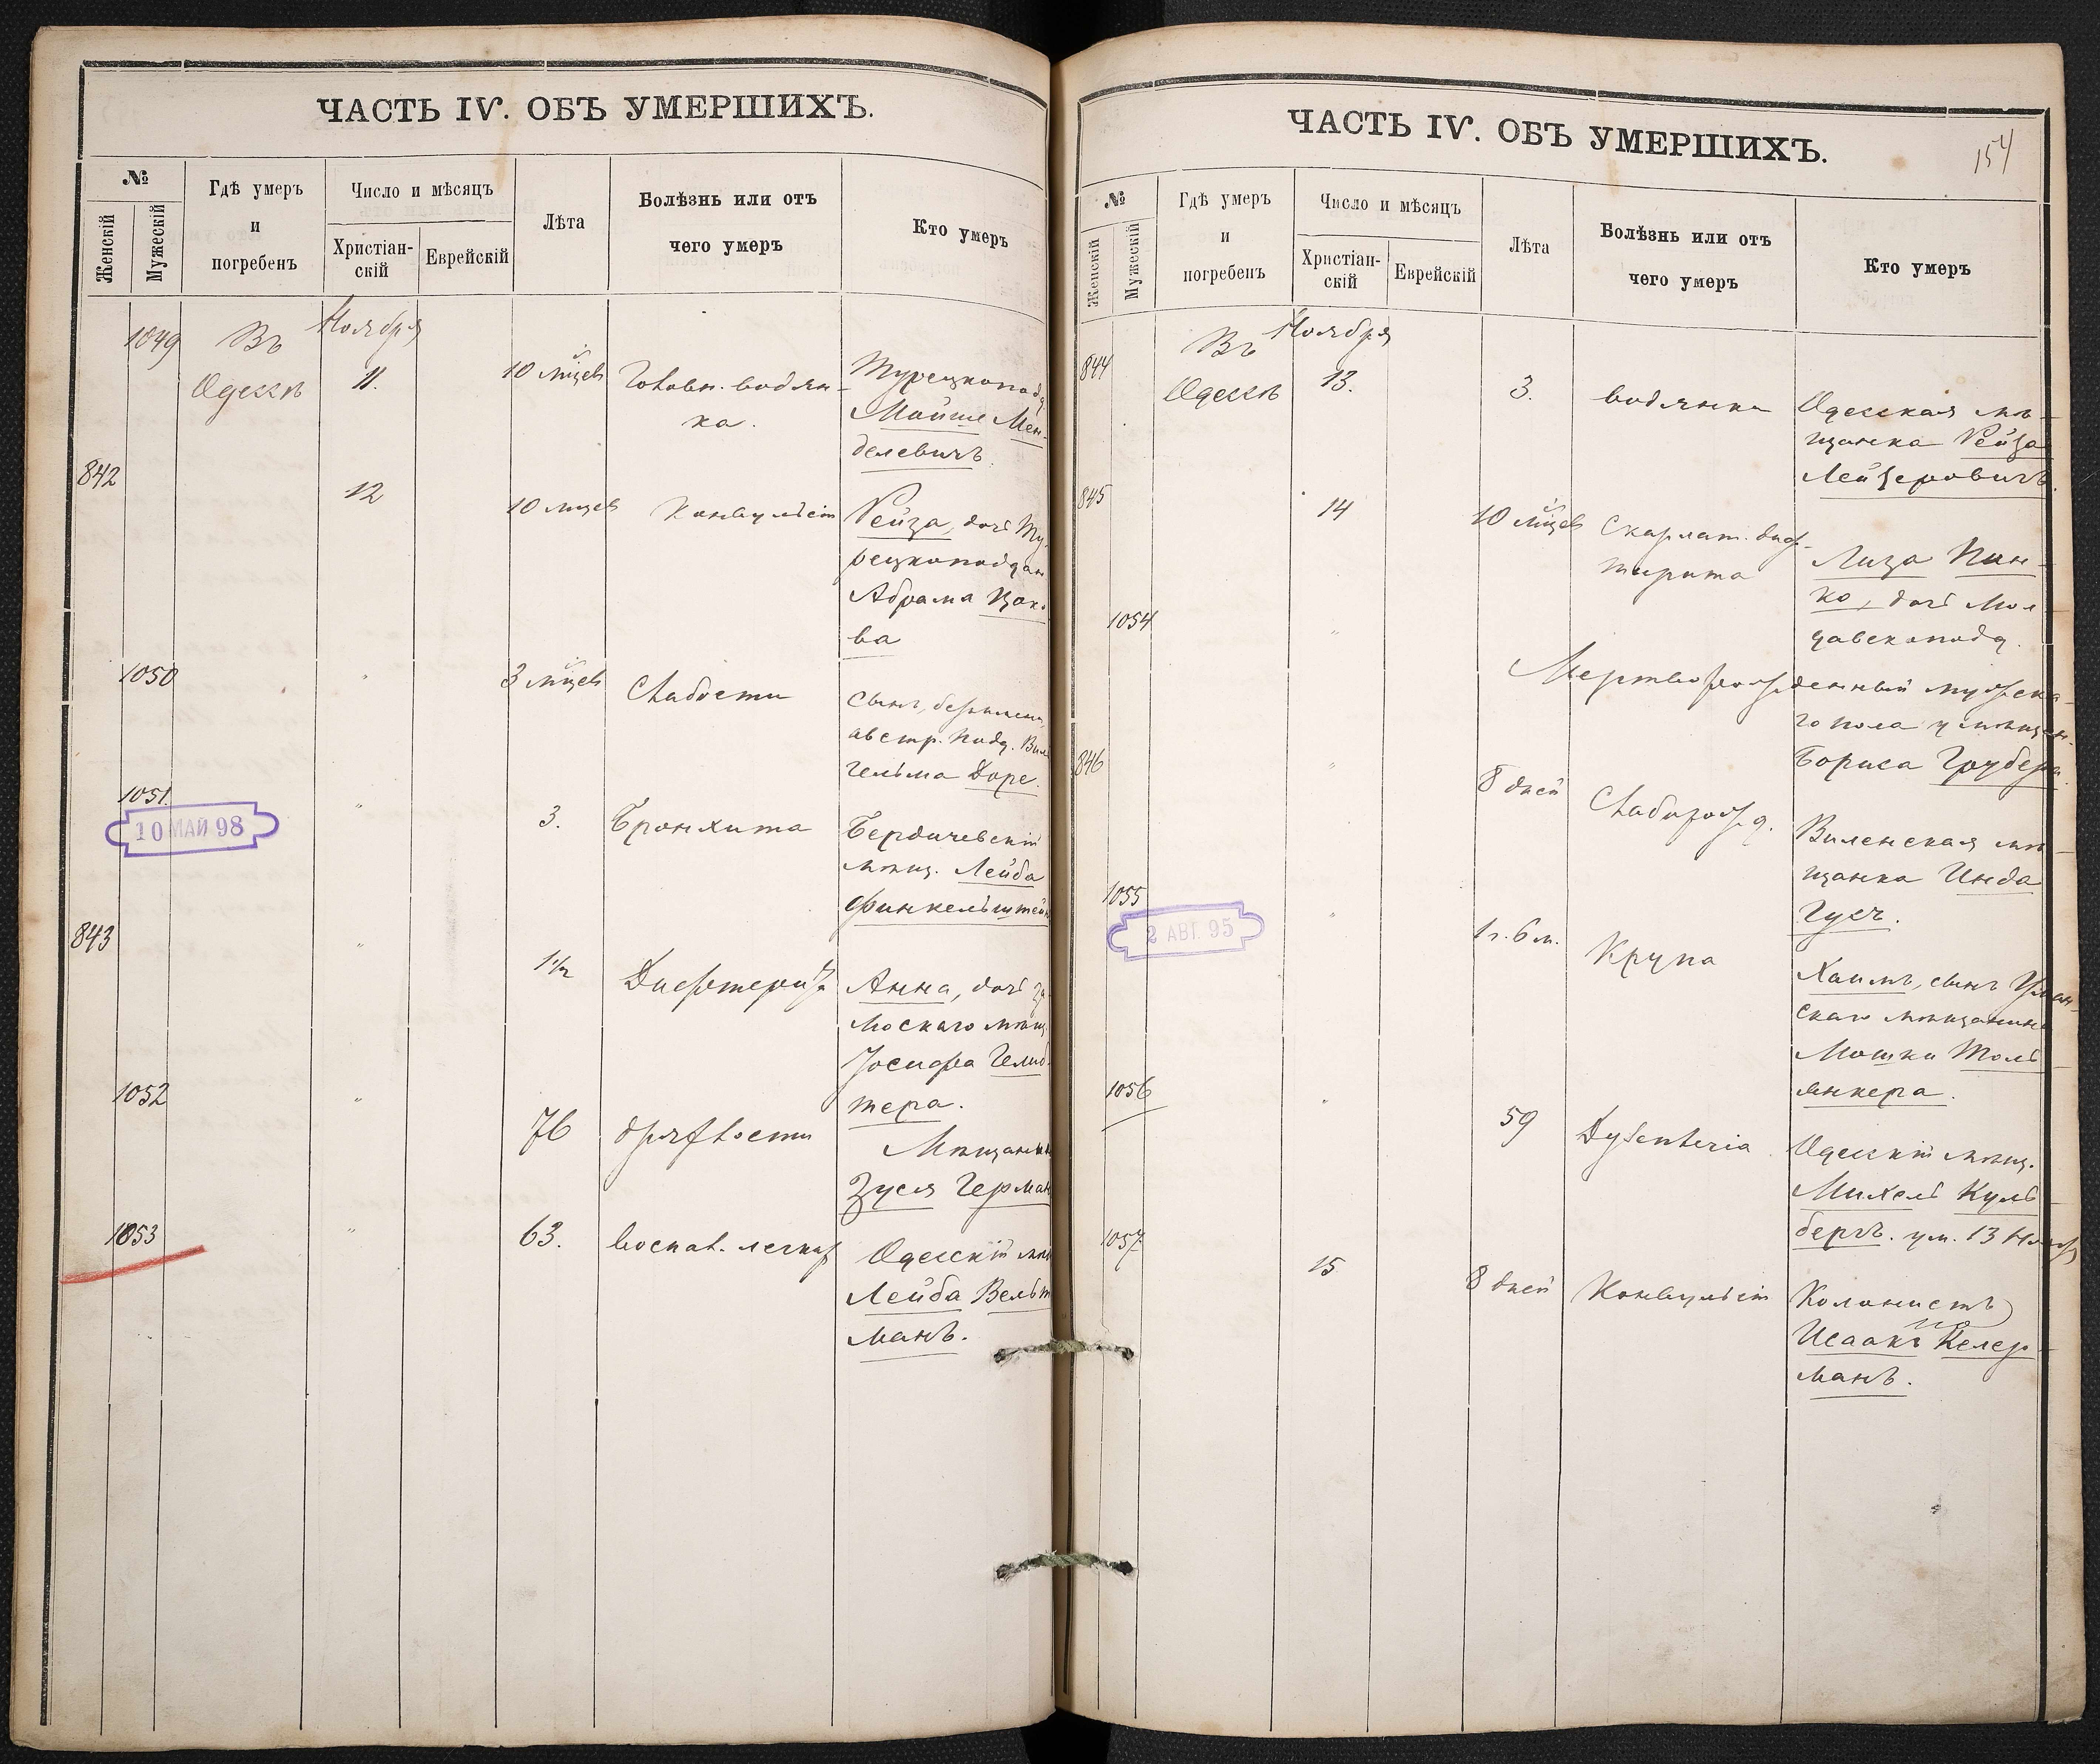 ЧАСТЬ IV. ОБЪ УМЕРШИХЪ.
№
Женскій
Мужескій
Гдѣ умеръ
и
погребенъ
Число и мѣсяцъ
Христіан-
скій
Еврейскій
Лѣта
Болѣзнь или отъ
чего умеръ
Кто умеръ
1049 Въ Ноября
Одессѣ 11. 10 мѣцев Головн. водян-
ка.
Турецкопод
Мойше Мен-
делевичъ.
842 12 10 мцев Конвульсіи
Рейза, дочь Ту-
рецкоподдан
Абрама
ва
1050 " 3 мѣцев Слабости
Сынъ, безъимен.
австр. подд. Виль
гельма Доре.
1051. " 3. Бронхита
10 МАЙ 98
Бердичевскій
мѣщ. Лейба
Финкельштейн
843 " 1½ Дифтерита
Анна, дочь
мѣщ
Іосифа
тера.
1052 " 76 дряхлости
Мѣщанинъ
Зуся Герман
1053 " 63. воспал. легких
Одесскій мѣщ
Лейба Вельт
манъ.
ЧАСТЬ IV. ОБЪ УМЕРШИХЪ.
154
№
Женскій
Мужескій
Гдѣ умеръ
и
погребенъ
Число и мѣсяцъ
Христіан-
скій
Еврейскій
Лѣта
Болѣзнь или отъ
чего умеръ
Кто умеръ
844 Въ Ноября
Одессѣ 13. 3. водянки
Одесская мѣ-
щанка Рейза
Лейзеровичъ.
845 14 10 мѣцев Скарлат. диф-
терита
Лиза Пин-
ко, дочь Мол
давскоподд.
1054 "
Мертворожденный мужска-
го пола у мѣщан.
Бориса Грубера.
846 " 8 дней Слаборожд.
Виленская мѣ-
щанка Инда
Гусъ.
1055 " 1 г. 6 м. Крупа
2 АВГ. 95
Хаимъ, сынъ Уман-
скаго мѣщанина
Мошки Толь
янкера.
1056 " 59 Dysenteria
Одесскій мѣщ.
Михель Куль
бергъ. ум. 13 Нояб
1057 15 8 дней Конвульсіи
Колонистъ
Исаакъ Келер-
манъ.